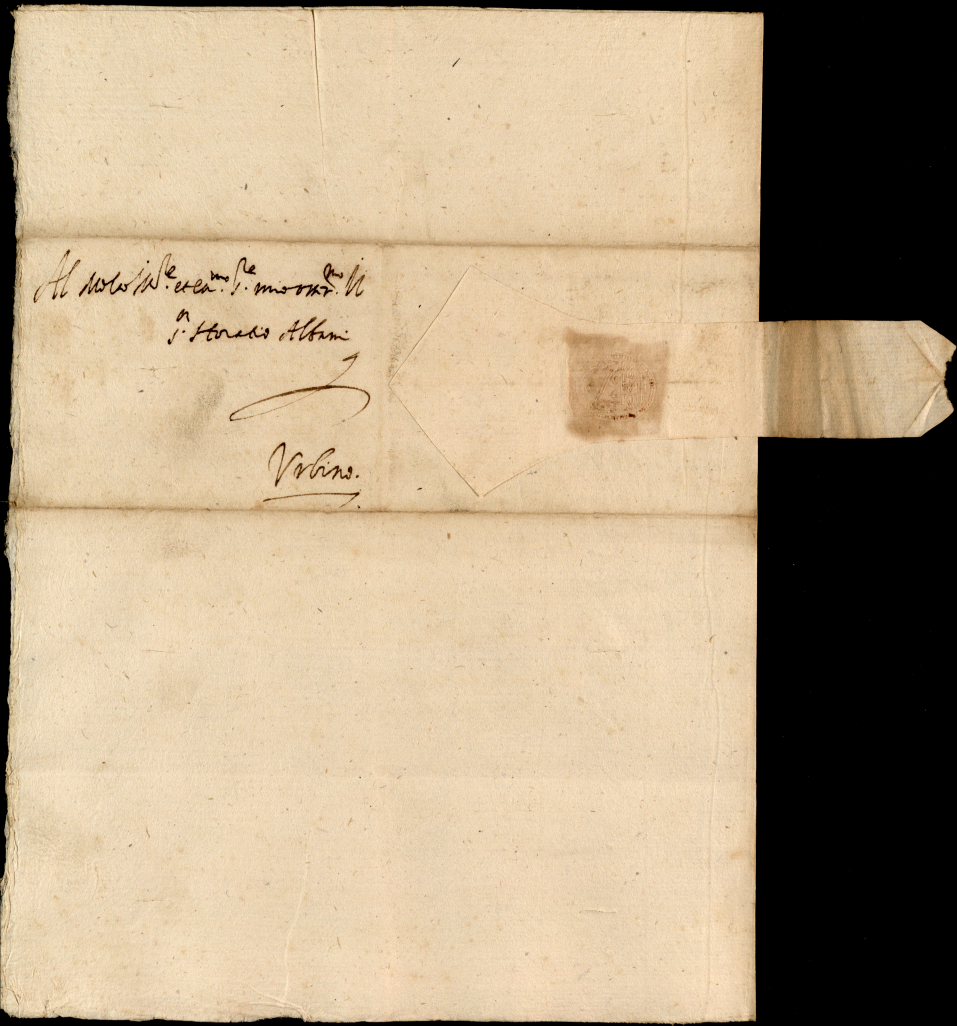 Al Molto Ill.re et ecc.mo s.re mio oss.mo Il
s.or Horatio Albani
Urbino.